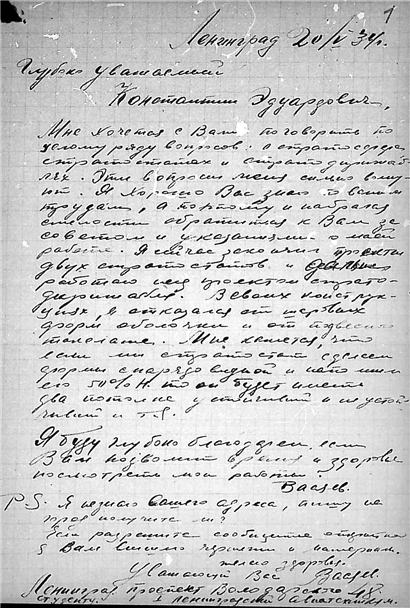 1
Ленинград 20/V 34 г.
Глубоко уважаемый
Константин Эдуардович,
Мне хочется с Вами поговорить по
целому ряду вопросов: о стратосфере
стратостатах и стратодирижаб-
лях. Эти вопросы меня сильно волну-
ют. Я хорошо Вас знаю по Вашим
трудам, а поэтому и набрался
смелости обратиться к Вам за
советом и указаниями о моей
работе. Я сейчас закончил проекты
двух стратостатов и
работаю над проектом страто-
дирижабля. В своих конструк-
циях, я отказался от шаровых
форм оболочки и от
Мне кажется, что
если мы стратостат сделаем
формы снарядовидной и
его 50% H то он будет иметь
два потолка устойчивый и неустой-
чивый и т.д.
Я буду глубоко благодарен, если
Вам позволит время и здоровье
посмотреть мои работы
Васев.
P.S. Я не знаю Вашего адреса, пишу не
зная получите ли?
Если разрешите сообщите
я Вам вышлю чертежи и материалы.
желаю здоровья.
Уважающий Вас Васев.
Ленинград проспект Володарского 48.
студенту. Ленинградский